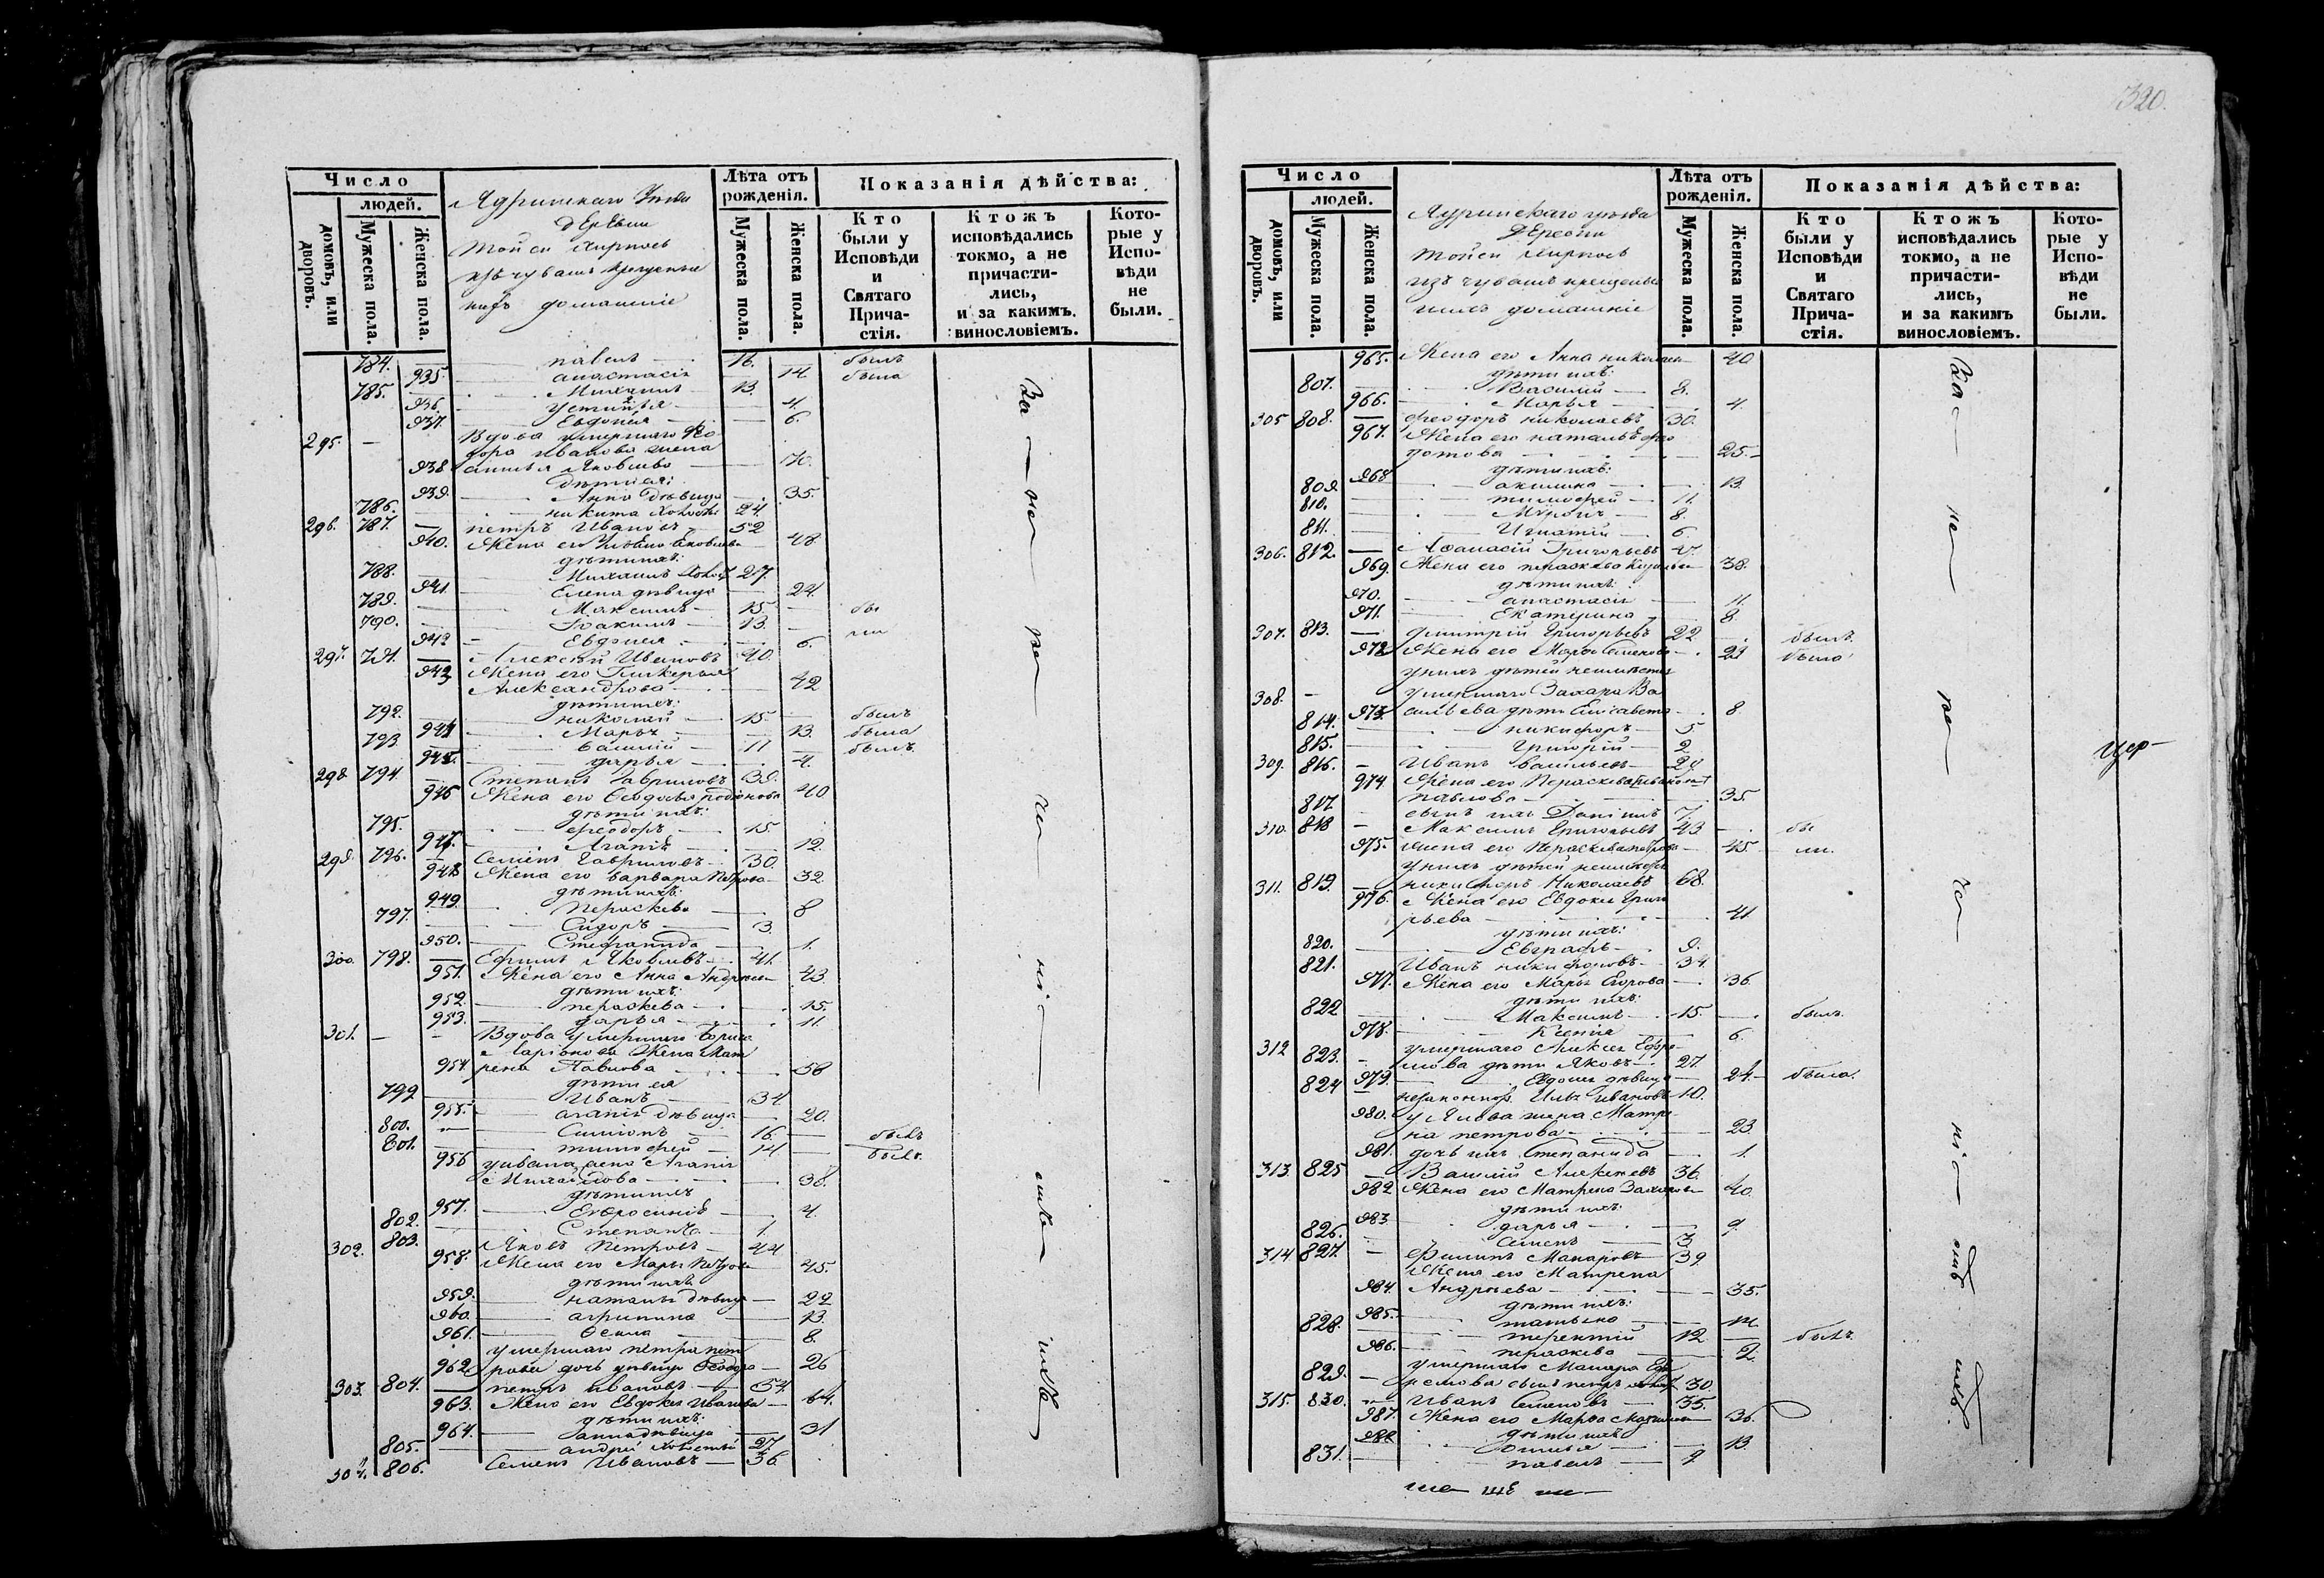 Число
людей.
домовъ, или дворовъ.
Мужеска пола.
Женска пола.
Ядринскаго Уѣзда
деревни
Тойси
изъ чувашъ крещеные
нихъ домашніе
Лѣта отъ рожденія.
Мужеска пола.
Женска пола.
Показанія дѣйства:
Кто были у Исповѣди и Святаго Прича-стія.
Ктожъ исповѣдались токмо, а не причасти-лись, и за какимъ. винословіемъ.
Кото-рые у Испо-вѣди не были.
784. павелъ 16. былъ
935 анастасія 14. была
785. Михаилъ 13.
936 Устинья 4.
937. Евдокія 6.
295. Вдова умершаго Фео
дора Иванова жена
938 Яковлева 70.
дѣти ея:
939. Анна дѣвица 35.
786. никита холостъ 24.
296. 787. петръ Ивановъ 52
940. Жена его Яковлева 48
дѣти ихъ:
788. Михаилъ холост 27.
941. Елена дѣвица 24.
789. Максимъ 15 бы
790. Іоакимъ 13. ли
942 Евдокія 6.
297. 791. Алексѣй Ивановъ 40.
943 Жена его Гликерья
Александрова 42
дѣти ихъ:
792. николай 15. былъ
944 Марья 13. была
793. василій 11 былъ
945. дарья 4.
298 794 Степанъ Гавриловъ 39.
946 Жена его Феодосья родіонова 40
дѣти ихъ:
795. феодоръ 15.
947. Агапія 12.
299. 796. Семенъ Гавриловъ 30.
948 Жена его варвара петрова 32
дѣти ихъ:
949. Пераскева 8
797. Сидоръ 3.
950. Стефанида 1.
300. 798. Ефимъ Яковлевъ 41.
951. Жена его Анна Андреева 43.
дѣти ихъ:
952. пераскева 15.
953. дарья 11.
301. Вдова умершаго Бориса
Ларіонова Жена Мат
954. рена Павлова 58
дѣти ея
799 Иванъ 34.
955. агапія дѣвица 20.
800. Симіонъ 16. былъ
801. тимофей 14 былъ.
956 у ивана жена Агапія
Михайлова 38.
дѣти ихъ
957. Ефросинія 4.
802. Степанъ 1.
302. 803. Яковъ Петровъ 44
958. Жена его Марья петрова 45.
дѣти ихъ
959. наталья дѣвица 22
960. агрипина 13.
961. 8.
умершаго петра пет
962 рова дочь дѣвица Феодора 26
303. 804. петръ ивановъ 64.
963. Жена его Евдокія Иванова 64.
дѣти ихъ:
964. анна дѣвица 31
805. андрей холостый 27.
304. 806. Семенъ Ивановъ 36
За не ра че ні
320.
Число
людей.
домовъ, или дворовъ.
Мужеска пола.
Женска пола.
Ядринскаго уѣзда
деревни
Тойси
изъ чувашъ крещены
нихъ домашніе
Лѣта отъ рожденія.
Мужеска пола.
Женска пола.
Показанія дѣйства:
Кто были у Исповѣди и Святаго Прича-стія.
Ктожъ исповѣдались токмо, а не причасти-лись, и за какимъ винословіемъ.
Кото-рые у Испо-вѣди не были.
965. Жена его Анна николаева 40
дѣти ихъ:
807. Василій 8.
966. Марья 4.
305 808. феодоръ николаевъ 30.
967. Жена его наталья фео
дотова 25.
дѣти ихъ:
968 акилина 13.
809. тимофей 11.
810. Миронъ 8.
811. Игнатій 6.
306. 812. Афанасій Григорьевъ
969. Жена его пераскева 38.
дѣти ихъ:
970. анастасія 11.
971. Екатерина 8.
307. 813. дмитрій Григорьевъ 22 былъ.
972 Жена его Марфа Семенова 21 была
у нихъ дѣтей неимѣется
308. умершаго Захара Ва
973. сильева дѣти Елисавета 8
814. никифоръ 5
815. Григорій 2
309. 816. Иванъ васильевъ 24
974. Жена его Пераскева
павлова 35.
817. сынъ ихъ Даніилъ 7.
310. 818 Максимъ Григорьевъ 43 бы
975. жена его Пераскева петрова 45 ли.
у нихъ дѣтей неимѣется
311. 819. никифоръ Николаевъ 68.
976. Жена его Евдокія Григо
рьева 41
дѣти ихъ:
820. Евграфъ 9.
821. Иванъ никифоровъ 34.
977. Жена его Марья Егорова 36
дѣти ихъ:
822 Максимъ 15. былъ
978. Ксенія 6.
312 умершаго Алексея Ефре
823. мова дѣти Яковъ 27.
979. Евдокія дѣвица 24 была.
824 незаконнор. Илья ивановъ 10.
980. у Якова жена Матре
на петрова 23
981. дочь ихъ Степанида 1.
313 825 Василій Алексеевъ 36.
982 Жена его Матрена Захарова 40.
дѣти ихъ:
983 дарья 9.
826. Семенъ 3
314 827. Филипъ Макаровъ 39
Жена его Матрена
984. Андреева 35.
дѣти ихъ:
985. татьяна 14
828. терентій 12 былъ
986. пераскева 2.
умершаго Макара Еф
829. ремова сынъ петръ 30.
315. 830. Иванъ Семеновъ 35.
987. Жена его Марфа 36.
дѣти ихъ
988 13.
831. павелъ 9
За не ра че ні